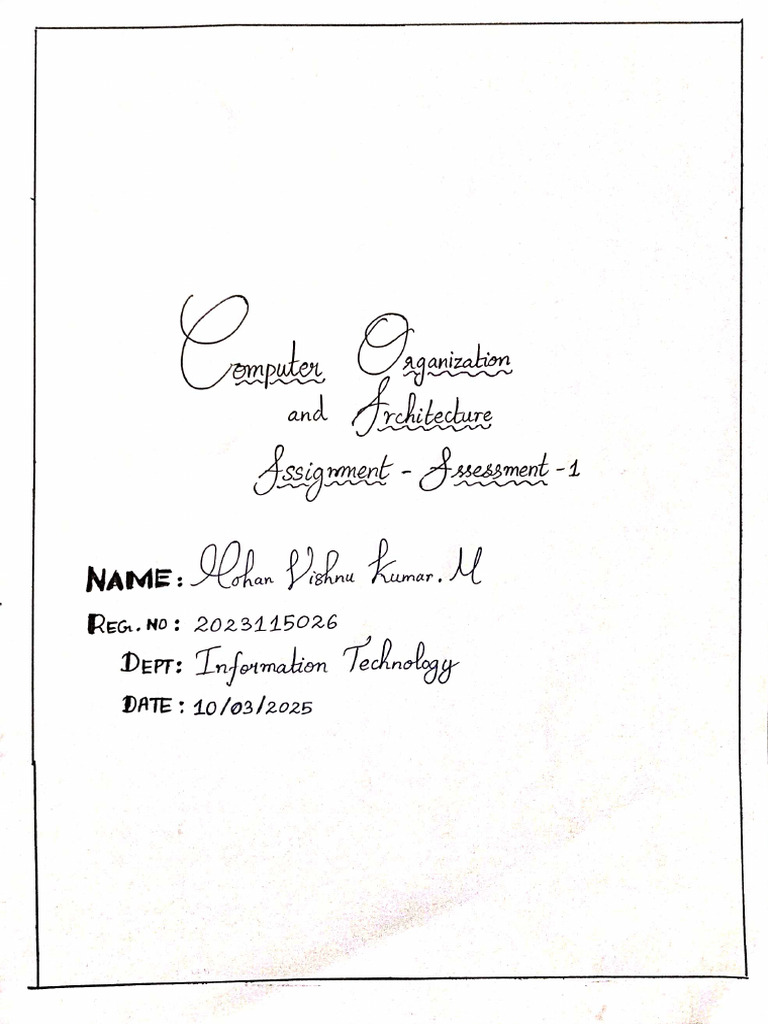 Computer Organization
and Architecture
Assignment - Assessment - 1
NAME: Mohan Vishnu Kumar. M
REG. NO: 2023115026
DEPT: Information Technology
DATE: 10/03/2025